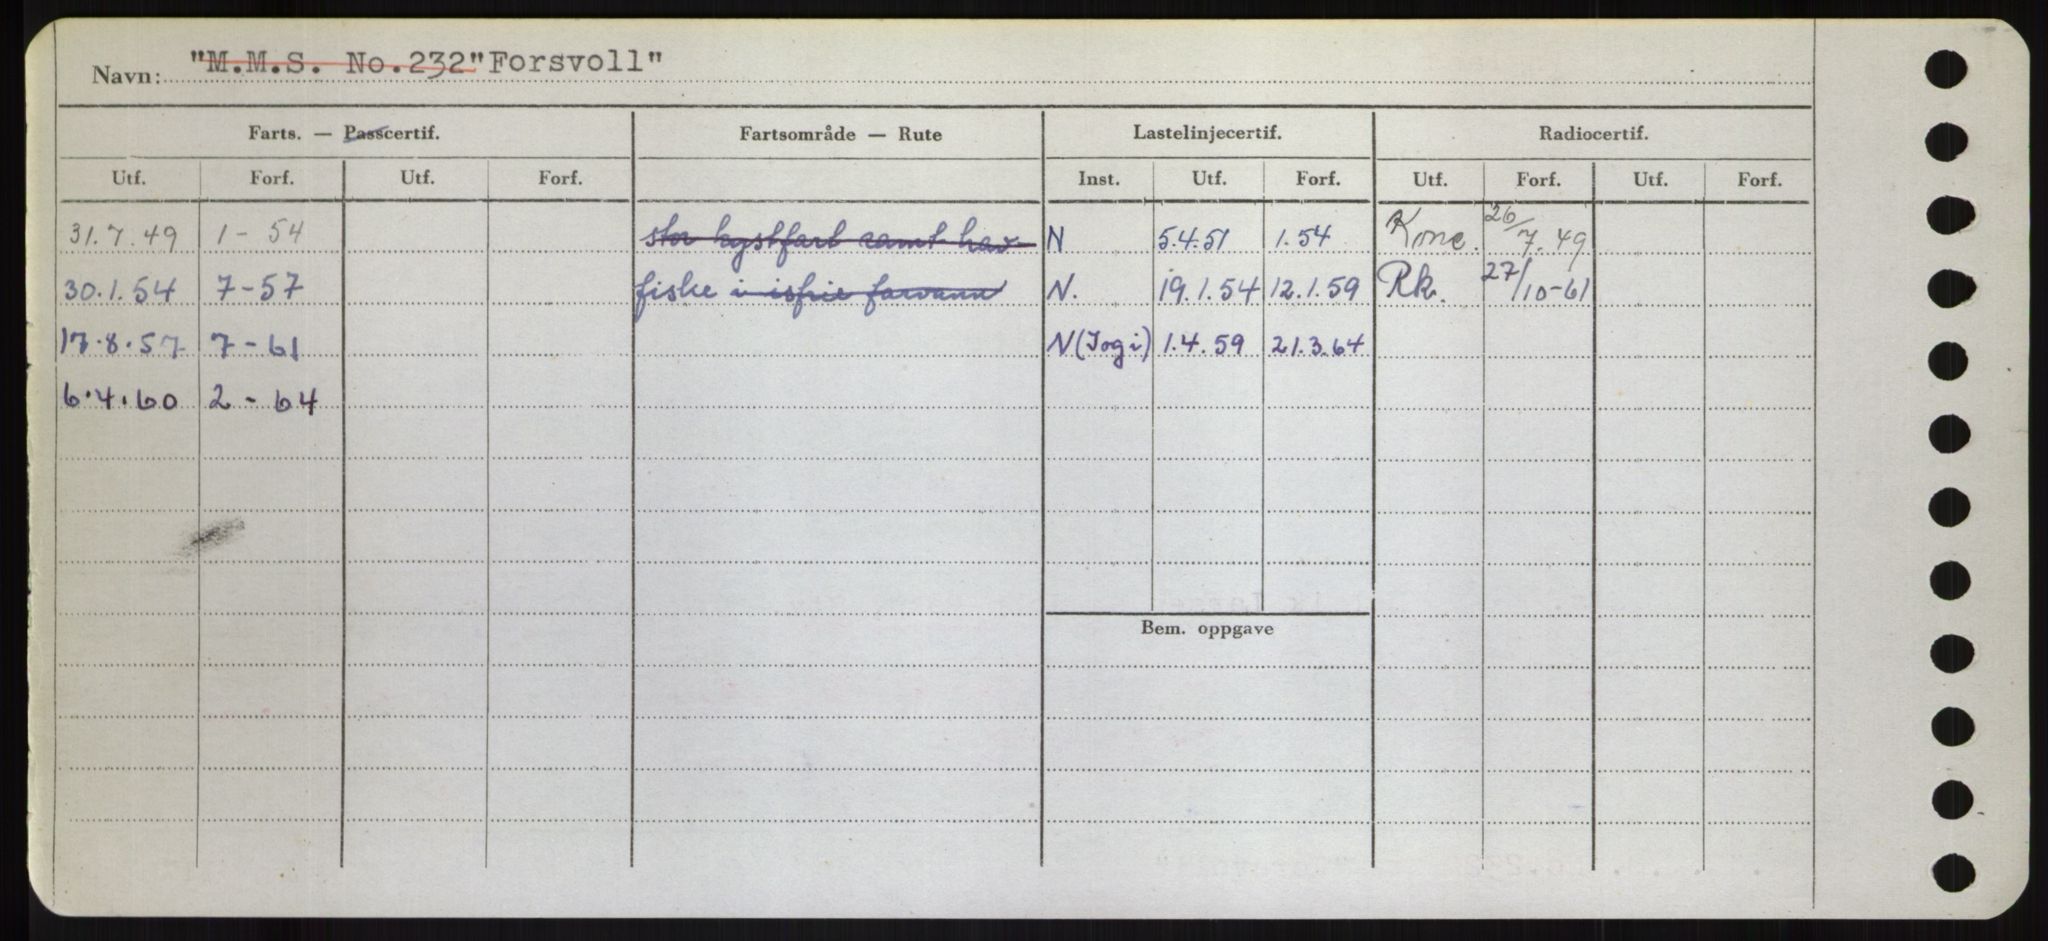 Navn: "M.M.S. No.232"Forsvoll"
Farts. — Passcertif. Fartsområde — Rute Lastelinjecertif. Radiocertif.
Utf. Forf. Utf. Forf. Inst. Utf. Forf. Utf. Forf. Utf. Forf.
31.7.49 1-54 stor kystfart samt hav- N 5.4.51 1.54 26/7.49
30.1.54 7-57 fiske i isfrie farvann N. 19.1.54 12.1.59 Rk. 27/10-61
17.8.57 7-61 N(Iogi) 1.4.59 21.3.64
6.4.60 2-64
Bem. oppgave